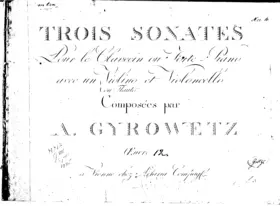 TROIS SONATES
Pour le Clavecin ou Forte-Piano
avec un Violino et Violoncello
ou Flauto
Composées par
A. GYROWETZ
Œuvre 12
à Vienne chez Artaria Compag